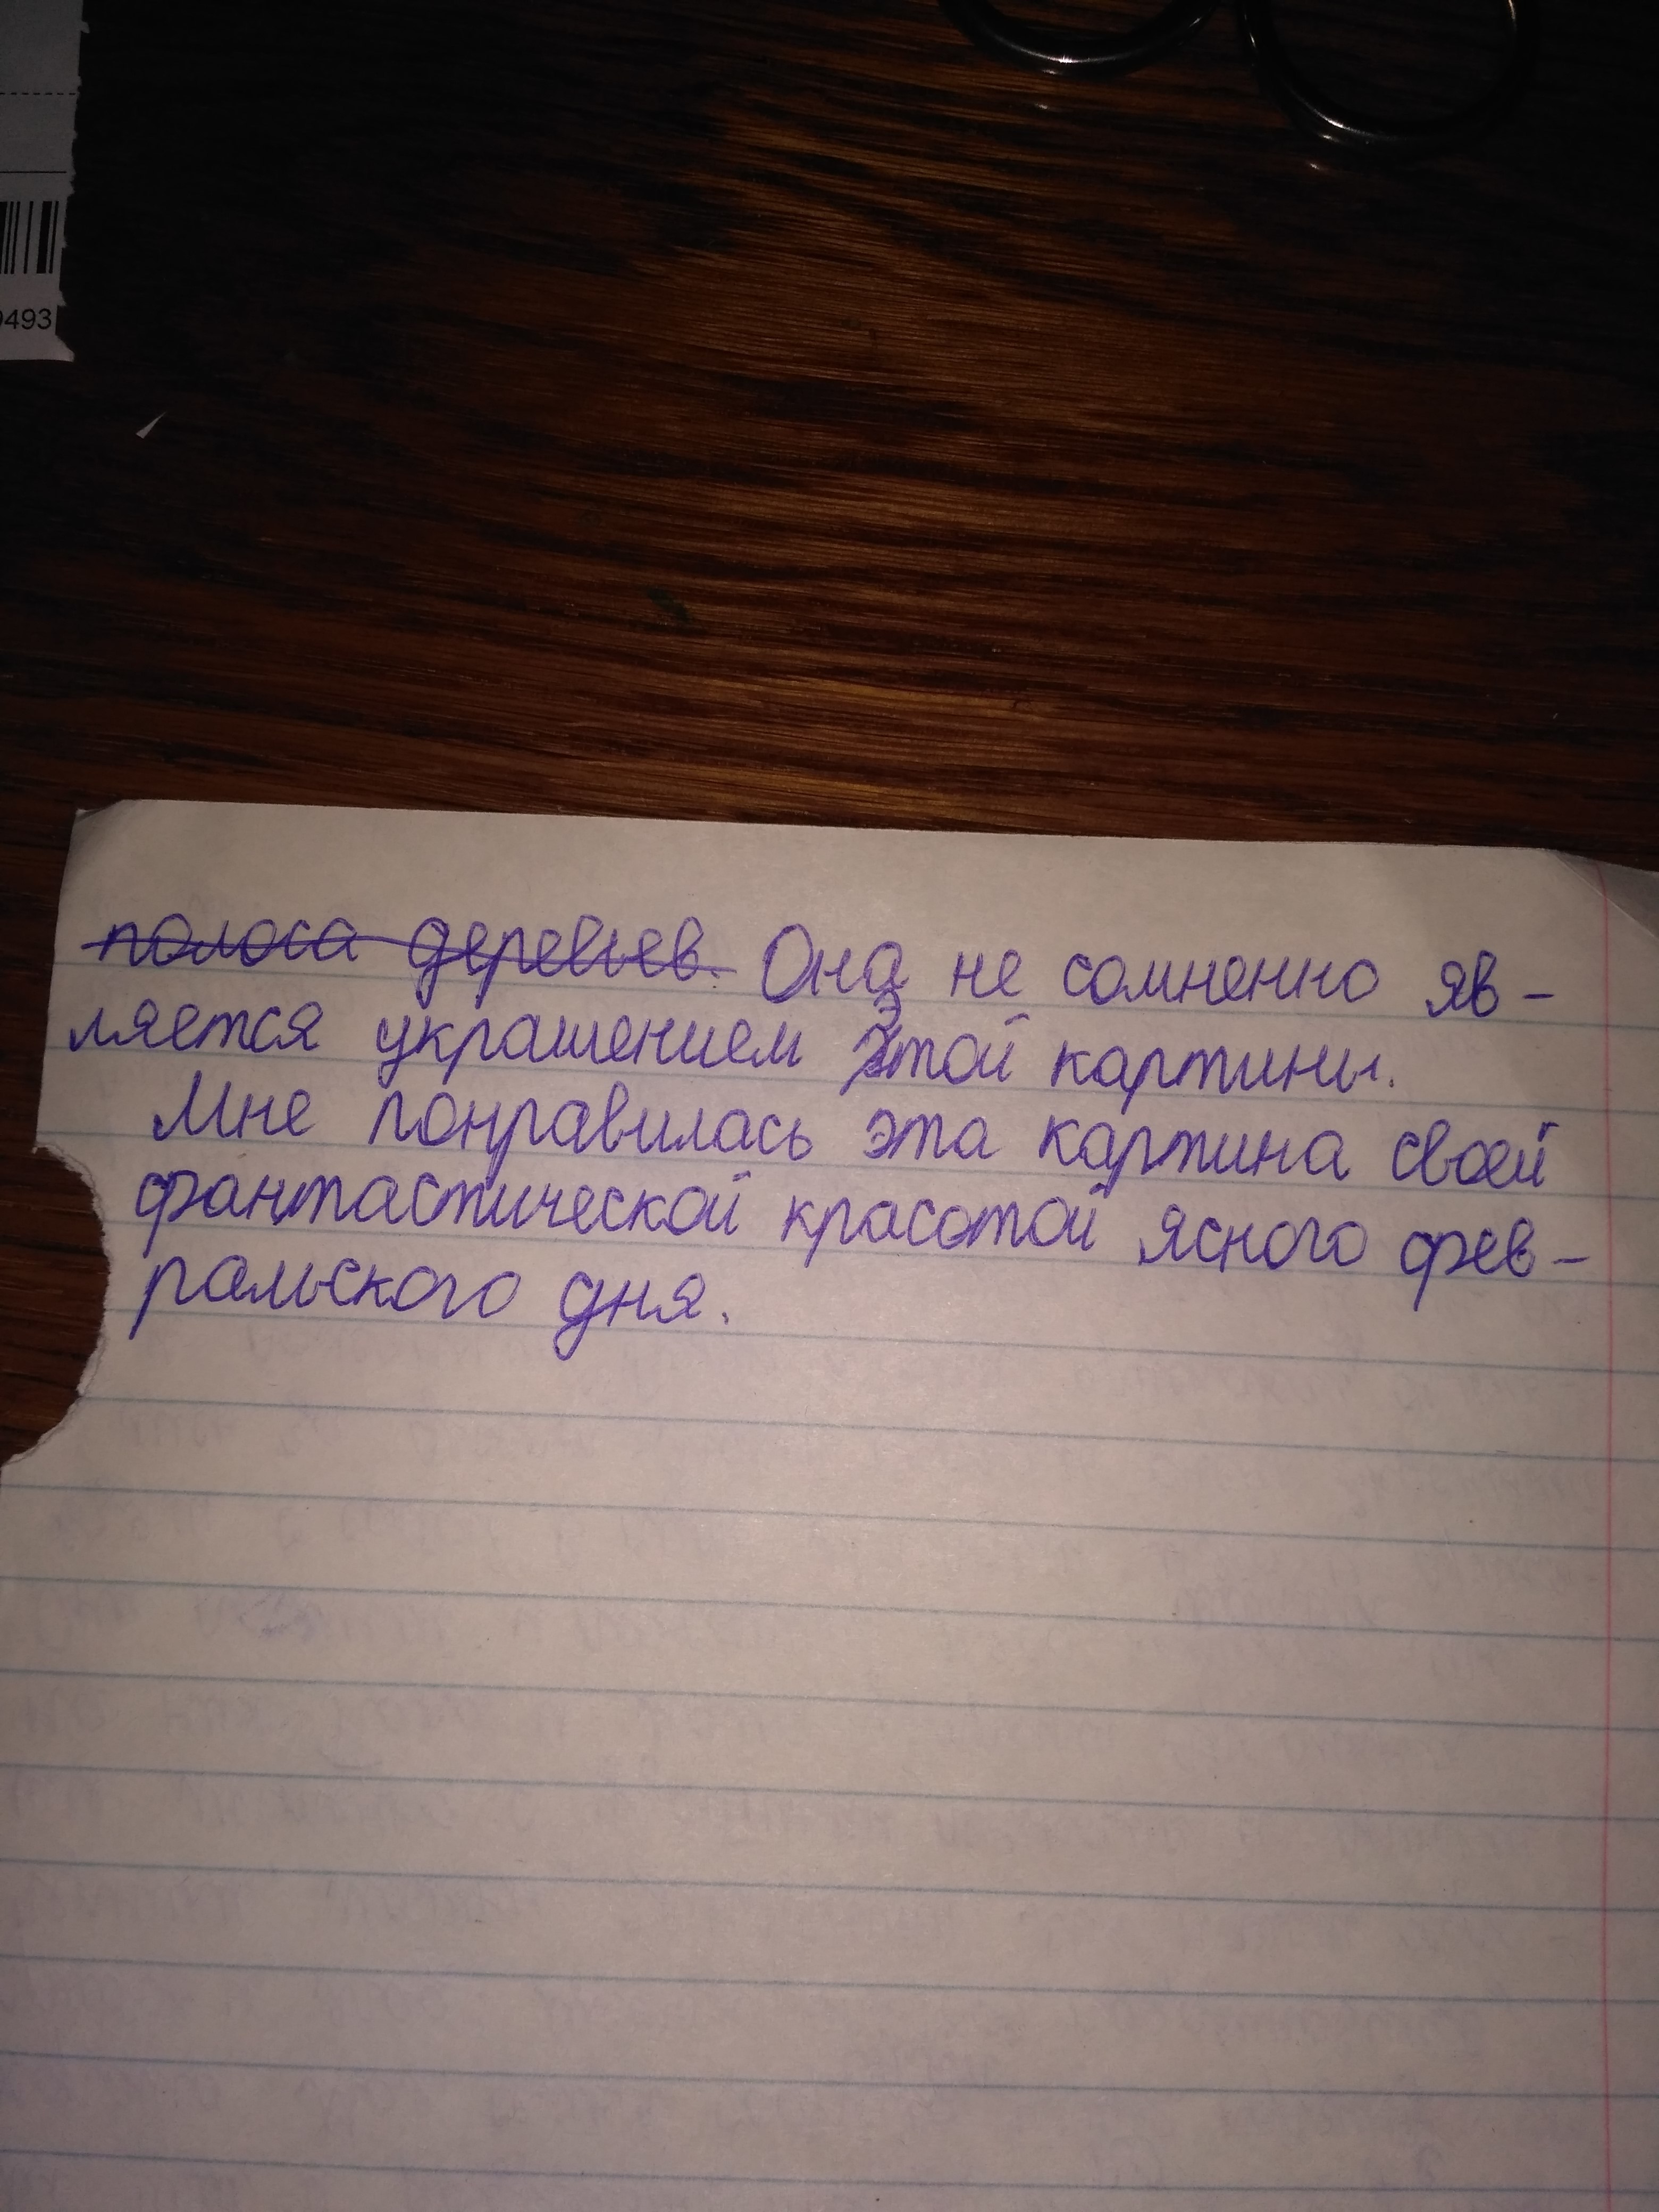 9493
полоса деревьев. Она не сомненно яв-
ляется украшением этой картины.
Мне понравилась эта картина своей
фантастической красотой ясного фев-
ральского дня.